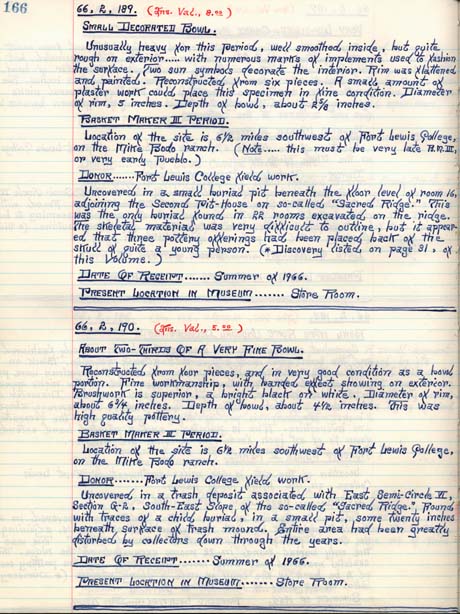 166
66, 2, 189. (Ins. Val., 8.00)
Small Decorated Bowl.
Unusually heavy for this period, well smoothed inside, but quite
rough on exterior..... with numerous marks of implements used to fashion
the surface. Two sun symbols decorate the interior. Rim was flattened
and painted. Reconstructed from six pieces. A small amount of
plaster work could place this specimen in fine condition. Diameter
of rim, 5 inches. Depth of bowl, about 2 7/8 inches.
Basket Maker III Period.
Location of the site is 6 1/2 miles southwest of Fort Lewis College,
on the Mike Bodo ranch. (Note.... this must be very late B.M. III,
or very early Pueblo.)
Donor.......Fort Lewis College field work.
Uncovered in a small burial pit beneath the floor level of room 16,
adjoining the Second Pit-House on so-called "Sacred Ridge." This
was the only burial found in 22 rooms excavated on the ridge.
The skeletal material was very difficult to outline, but it appear-
ed that three pottery offerings had been placed back of the
skull of quite a young person. (*Discovery listed on page 81, of
this Volume.)
Date Of Receipt....... Summer of 1966.
Present Location in Museum....... Store Room.
66, 2, 190. (Ins. Val., 5.00)
About Two-Thirds Of A Very Fine Bowl.
Reconstructed from four pieces, and in very good condition as a bowl
portion. Fine workmanship, with banded effect showing on exterior.
Brushwork is superior, a bright black on white. Diameter of rim,
about 6 3/4 inches. Depth of bowl, about 4 1/2 inches. This was
high quality pottery.
Basket Maker III Period.
Location of the site is 6 1/2 miles southwest of Fort Lewis College,
on the Mike Bodo ranch.
Donor.......Fort Lewis College field work.
Uncovered in a trash deposit associated with East, Semi-Circle VI,
Section Q-2, South-East Slope, of the so-called "Sacred Ridge." Found
with traces of a child burial, in a small pit, some twenty inches
beneath surface of trash mound. Entire area had been greatly
disturbed by collectors down through the years.
Date Of Receipt....... Summer of 1966.
Present Location in Museum....... Store Room.